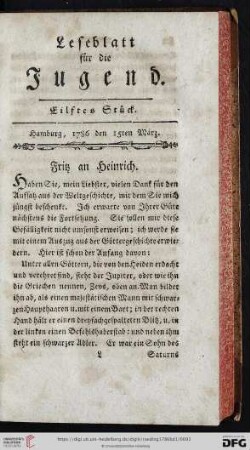 Leseblatt
für die
Jugend.
Eilftes Stück.
Hamburg, 1786 den 15ten März.
Fritz an Heinrich.
Haben Sie, mein liebster, vielen Dank für den
Aufsatz aus der Weltgeschichte, mit dem Sie mich
jüngst beschenkt. Ich erwarte von Ihrer Güte
nächstens die Fortsetzung. Sie sollen mir diese
Gefälligkeit nicht umsonst erweisen; ich werde sie
mit einem Auszug aus der Göttergeschichte erwie
dern. Hier ist schon der Anfang davon:
Unter allen Göttern, die von den Heiden erdacht
und verehret sind, steht der Jupiter, oder wie ihn
die Griechen nennen, Zevs, oben an. Man bildet
ihn ab, als einen majestätischen Mann mit schwar-
zen Haupthaaren u. mit einem Bart; in der rechten
Hand hält er einen dreyfachgespaltenen Blitz, u. in
der linken einen Befehlshaberstab: und neben ihm
steht ein schwarzer Adler. Er war ein Sohn des
L Saturns
UNIVERSITÄTS-BIBLIOTHEK HEIDELBERG
DFG